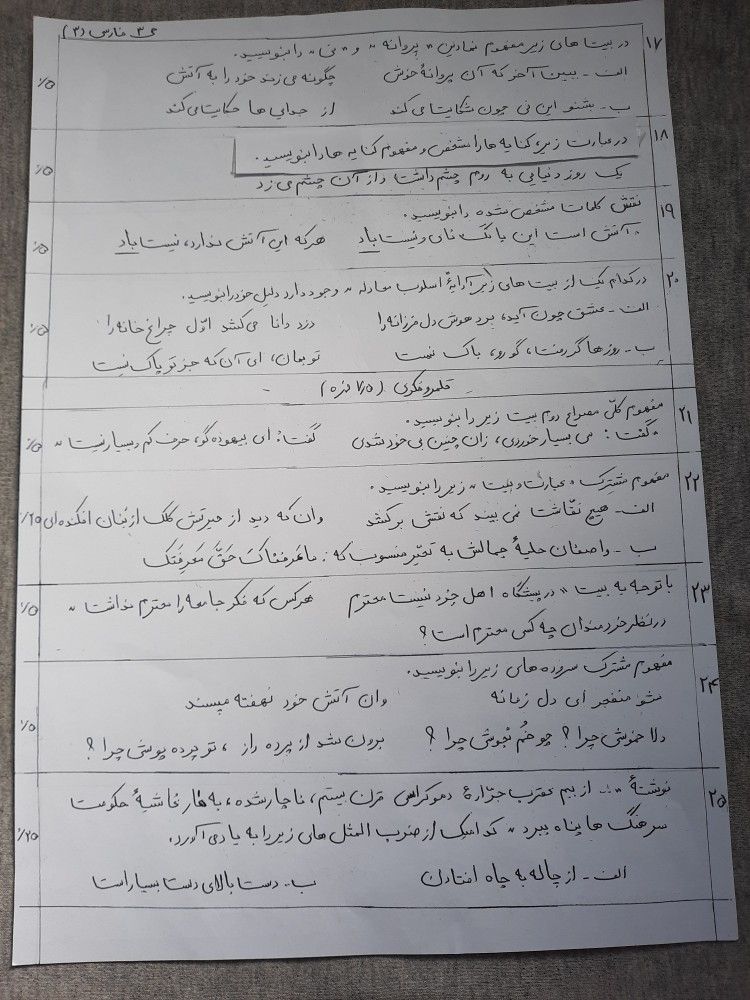 ص ۳ فارسی (۳)
۱۷ در بیت های زیر مفهوم نمادین « پروانه » و « نی » را بنویسید.
الف - ببین آخر که آن پروانهٔ خوش چگونه می زند خود را به آتش
ب - بشنو این نی چون شکایت می کند از جدایی ها حکایت می کند ۰/۵
۱۸ در عبارت زیر، کنایه ها را مشخص و مفهوم کنایه ها را بنویسید.
یک روز دنیایی به روم چشم داشت و از آن چشم می زد ۰/۵
۱۹ نقش کلمات مشخص شده را بنویسید.
« آتش است این بانگ نای و نیست باد هرکه این آتش ندارد، نیست باد ۰/۵
۲۰ در کدام یک از بیت های زیر آرایهٔ اسلوب معادله » وجود دارد دلیل خود را بنویسید.
الف - عشق چون آید، برد هوش دل فرزانه را دزد دانا می کشد اوّل چراغ خانه را ۰/۵
ب - روزها گر رفت، گو رو، باک نیست تو بمان، ای آن که جز تو پاک نیست
قلمرو فکری (۷/۵ نمره)
۲۱ مفهوم کلّی مصراع دوم بیت زیر را بنویسید.
« گفت: می بسیار خوردی، زان چنین بی خود شدی گفت: ای بیهوده گو، حرف کم و بسیار نیست » ۰/۵
۲۲ مفهوم مشترک « عبارت و بیت » زیر را بنویسید.
الف - هیچ نقّاشت نمی بیند که نقش برکشد وان که دید از حیرتش کلک از بنان افکنده ای ۰/۲۵
ب - واصفان حلیهٔ جمالش به تحیّر منسوب که: ما عَرَفناکَ حَقَّ مَعرِفَتِکَ
۲۳ با توجه به بیت « در پیشگاه اهل خرد نیست محترم هرکس که فکر جامعه را محترم نداشت »
در نظر خردمندان چه کسی محترم است؟ ۰/۵
۲۴ مفهوم مشترک سروده های زیر را بنویسید.
مشو منفجر ای دل زمانه وان آتش خود نهفته مپسند
دلا خموشی چرا؟ چو خُم نجوشی چرا؟ برون شد از پرده راز ، تو پرده پوشی چرا؟ ۰/۵
۲۵ نوشتهٔ «... از بیم عقرب جرّارهٔ دموکراسی قرن بیستم، ناچار شده، به مار غاشیهٔ حکومت
سرهنگ ها پناه ببرد » کدام یک از ضرب المثل های زیر را به یاد می آورد. ۰/۲۵
الف - از چاله به چاه افتادن ب - دست بالای دست بسیار است